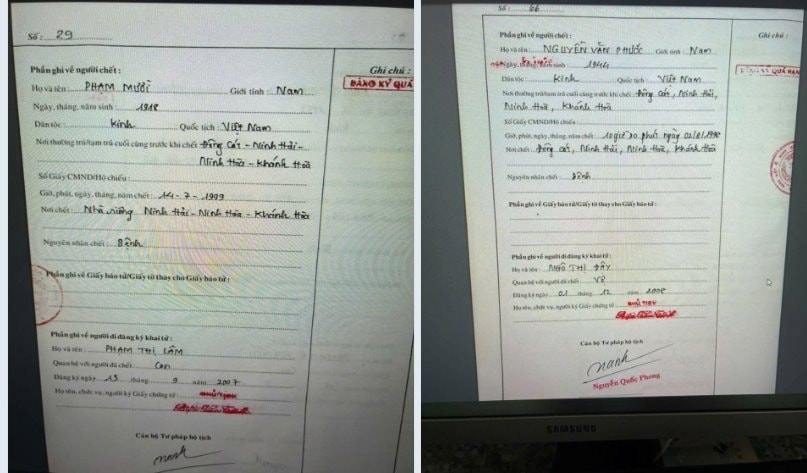 Số: 29
Phần ghi về người chết:
Ghi chú:
Họ và tên: PHẠM MƯỜI Giới tính: Nam
ĐĂNG KÝ QUÁ
Ngày, tháng, năm sinh: 1918
Dân tộc: Kinh Quốc tịch: Việt Nam
Nơi thường trú/tạm trú cuối cùng trước khi chết: Đông Cát - Ninh Hải -
Ninh Hòa - Khánh Hoà
Số Giấy CMND/Hộ chiếu:
Giờ, phút, ngày, tháng, năm chết: 14-7-1999
Nơi chết: Nhà riêng Ninh Hải - Ninh Hòa - Khánh Hòa
Nguyên nhân chết: Bệnh
Phần ghi về Giấy báo tử/Giấy tờ thay cho Giấy báo tử:
Phần ghi về người đi đăng ký khai tử:
Họ và tên: PHẠM THỊ LÂM
Quan hệ với người đã chết: Con
Đăng ký ngày 13 tháng 9 năm 2007
Họ tên, chức vụ, người ký Giấy chứng tử
Cán bộ Tư pháp hộ tịch
Số: 66
Phần ghi về người chết:
Ghi chú:
Họ và tên: NGUYỄN VĂN PHƯỚC Giới tính: Nam
Ngày, tháng, năm sinh: 1944
ĐĂNG KÝ QUÁ HẠN
Dân tộc: Kinh Quốc tịch: Việt Nam
Nơi thường trú/tạm trú cuối cùng trước khi chết: Đông Cát, Ninh Hải,
Ninh Hoà, Khánh Hoà
Số Giấy CMND/Hộ chiếu:
Giờ, phút, ngày, tháng, năm chết: 10 giờ 30 phút ngày
Nơi chết: Đông cát, Ninh Hải, Ninh Hoà, Khánh Hoà
Nguyên nhân chết: Bệnh
Phần ghi về Giấy báo tử/Giấy tờ thay cho Giấy báo tử:
Phần ghi về người đi đăng ký khai tử:
Họ và tên: THỊ ĐÂY
Quan hệ với người đã chết: Vợ
Đăng ký ngày 01 tháng 12 năm 2008
Họ tên, chức vụ, người ký Giấy chứng tử
Cán bộ Tư pháp hộ tịch
Nguyễn Quốc Phong
SAMSUNG